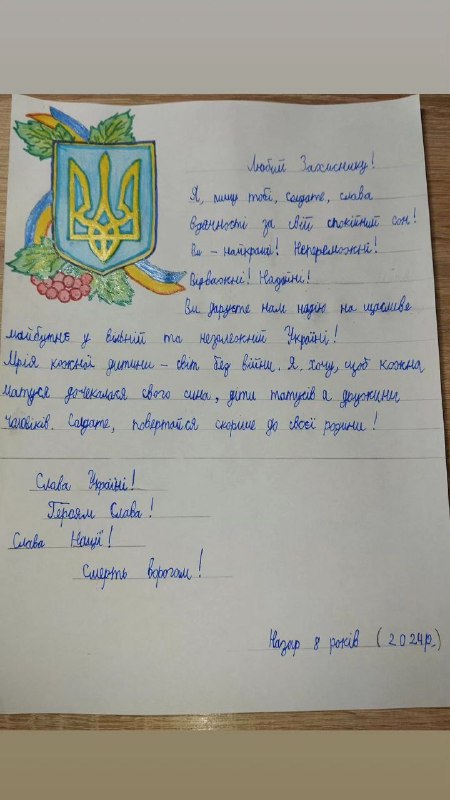 Любий Захиснику!
Я, пишу тобі, солдате, слова
вдячності за свій спокійний сон!
Ви - найкращі! Непереможні!
Відважні! Надійні!
Ви даруєте нам надію на щасливе
майбутнє у вільній та незалежній Україні!
Мрія кожної дитини - світ без війни. Я, хочу, щоб кожна
матуся дочекалася свого сина, діти татусів а дружини
чоловіків. Солдате, повертайся скоріше до своєї родини!
Слава Україні!
Героям Слава!
Слава Нації!
Смерть ворогам!
Назар 8 років (2024р.)